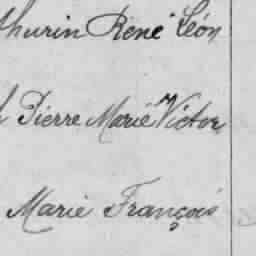 thurin René Léon
Pierre Marie Victor
Marie François